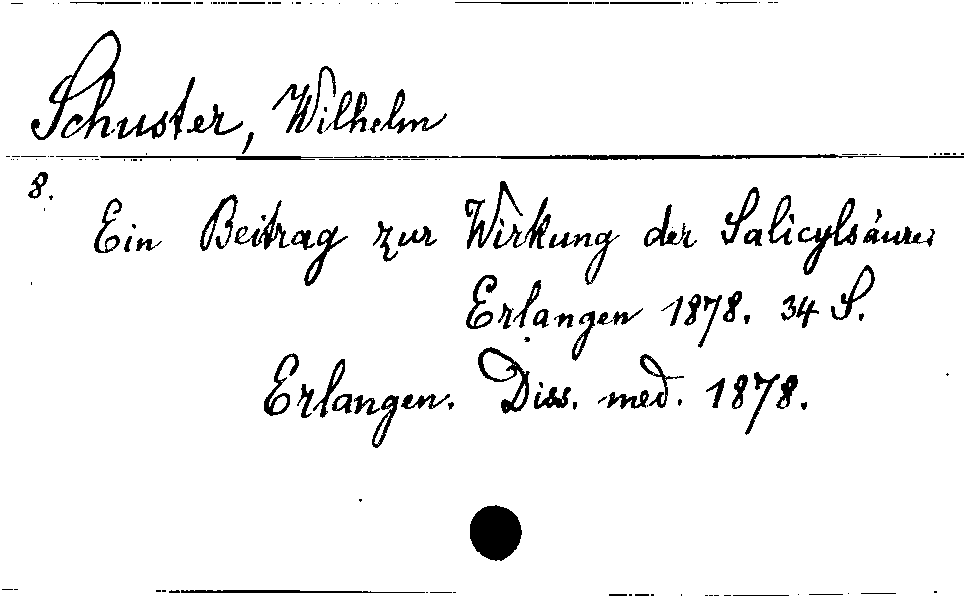 Schuster, Wilhelm
8.
Ein Beitrag zur Wirkung der Salicylsäure.
Erlangen 1878. 34 S.
Erlangen. Diss. med. 1878.